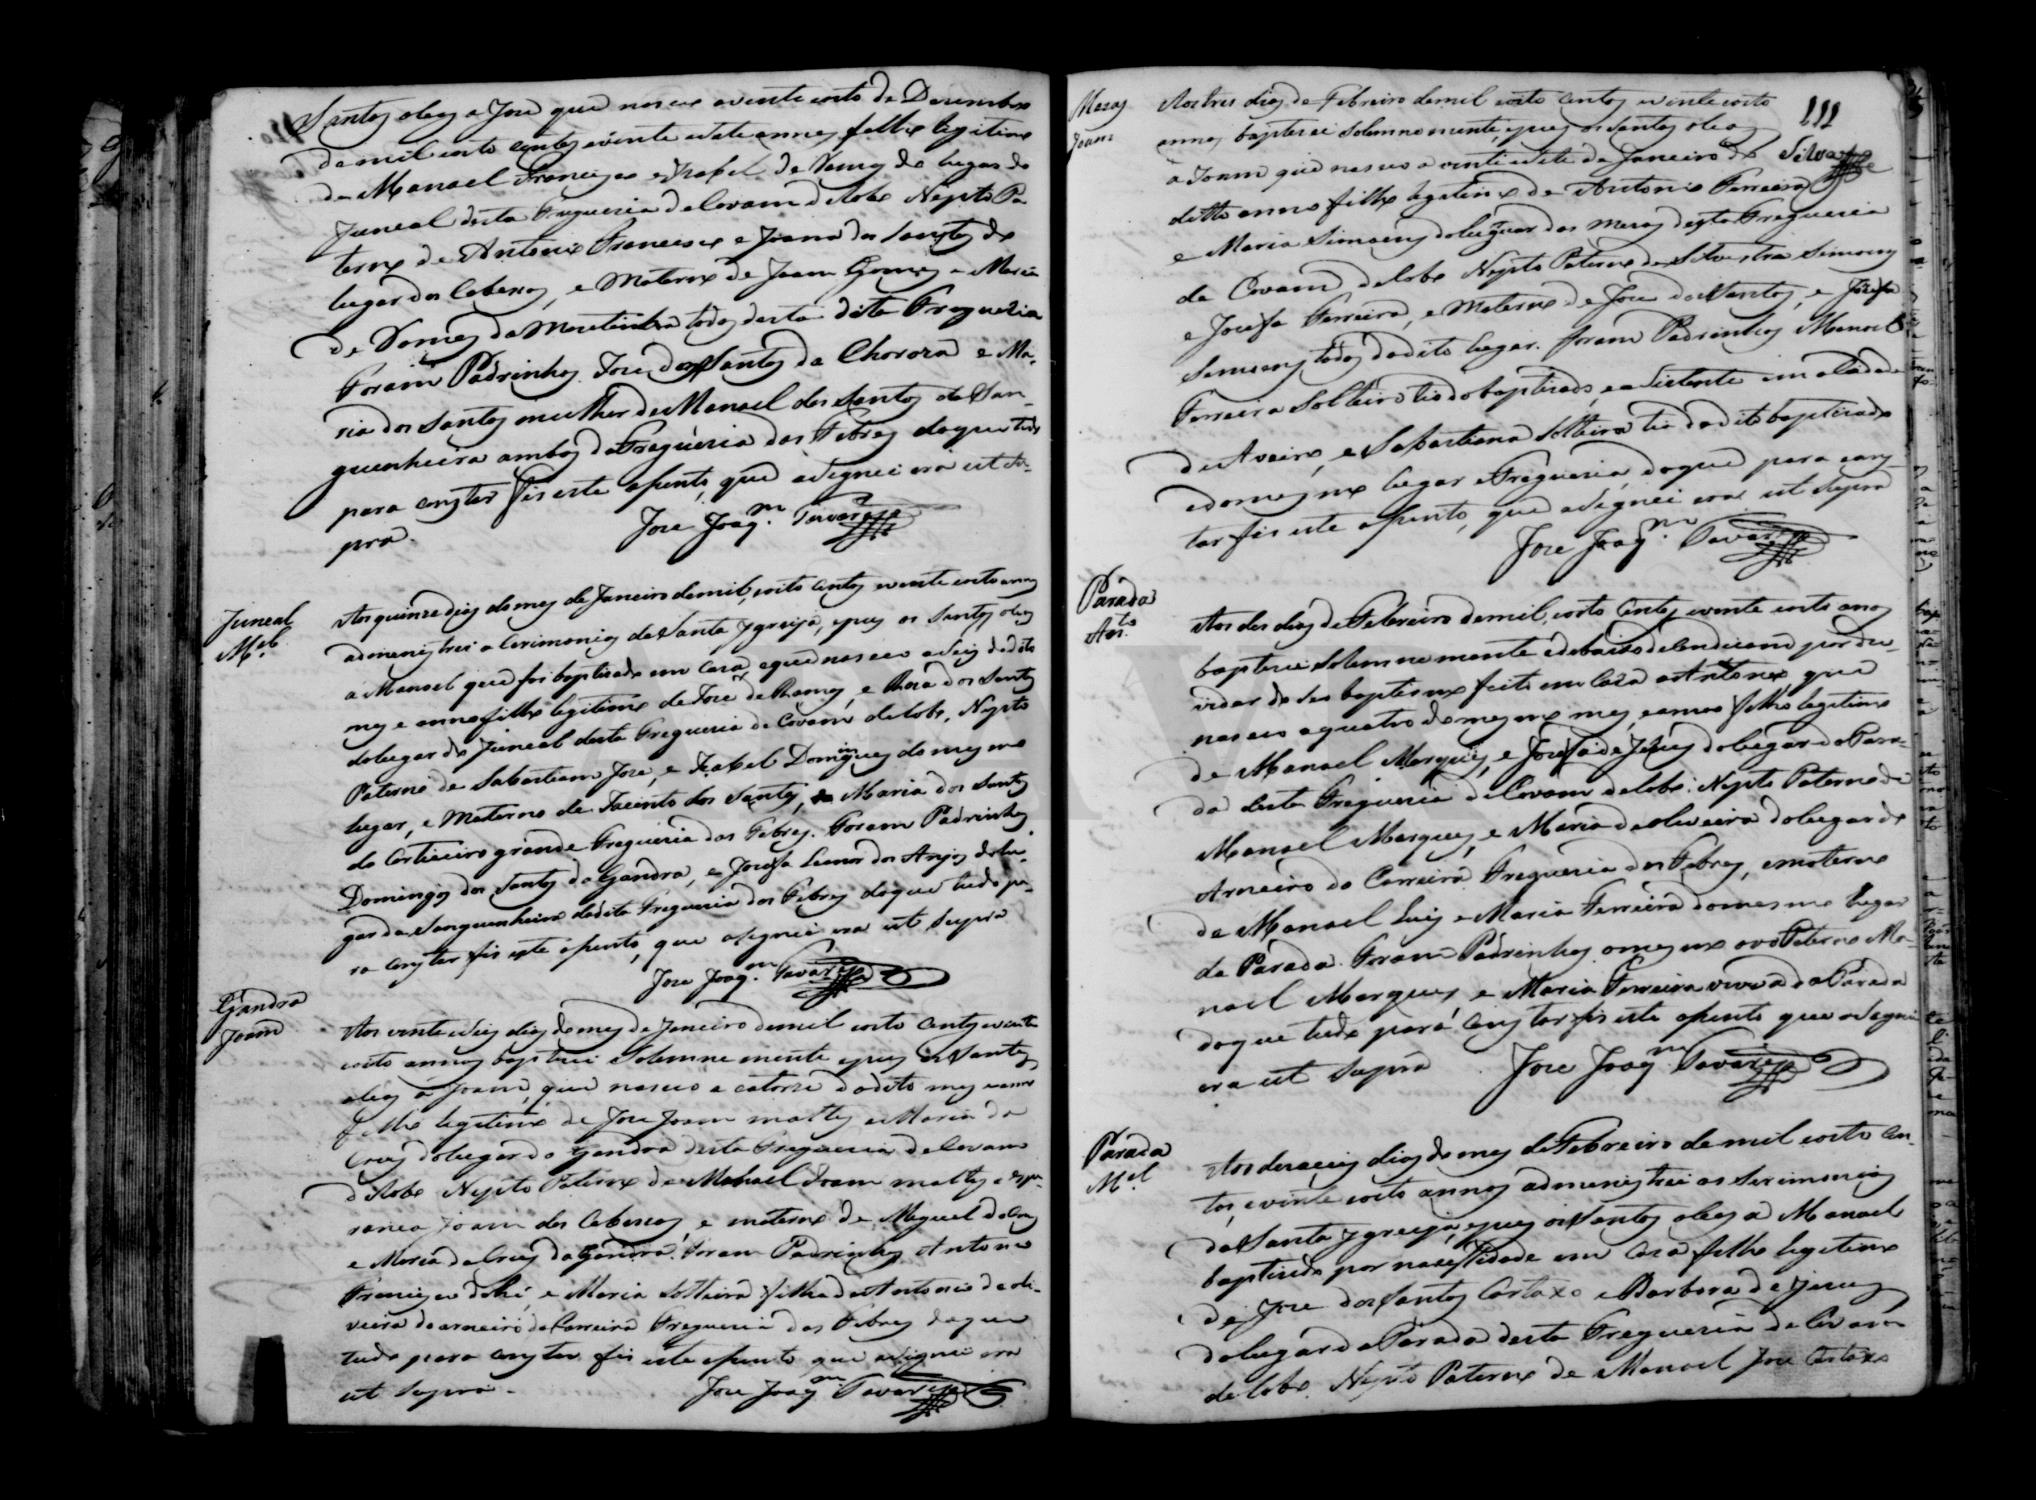 Santos oleos a José que nasceo a vinte e oito de Dezembro
de mil e oito centos e vinte e sete annos, filho legitimo
de Manoel Francisco e Izabel de Jesus do lugar do
Juncal desta Freguesia de Covam de Lobo Nepto Pa
terno de Antonio Francisco e Joana dos Santos do
lugar dos Cabesos, e Materno de Joam Gomes e Maria
de da Moutinha todos desta dita Freguezia
Foram Padrinhos José dos Santos da Chorosa e Ma-
ria dos Santos mulher de Manoel dos Santos da San-
guinheira ambos da Freguesia das Febres doque tudo
para constar fis este asento, que asignei era ut su-
pra. Jose Joaqm. Tavares
Juncal
Mel.
Aos quinze dias do mes de Janeiro de mil, oito centos e vinte e oito annos
admenistrei as cerimonias da Santa Ygreija, e pus os Santos oleos
a Manoel que foi baptizado em casa, e que nasceo a seis do dito
mes e anno filho legitimo de José de Ramos, e Rosa dos Santos
do lugar do Juncal desta Freguesia de Covam de Lobo, Nepto
Paterno de Sabastiam José, e Izabel Domingues do mesmo
lugar, e Materno de Jacinto dos Santos, e Maria dos Santos
do Corticeiro grande Freguesia das Febres. Foram Padrinhos
Domingos dos Santos da Gandra, e Josefa Leonor dos Anjos do lu-
gar da Sanguinheira da dita Freguesia das Febres doque tudo pa-
ra constar fis este asento, que asignei era ut supra
Jose Joaqm. Tavares
Gandra
Joam
Aos vinte e seis dias do mes de Janeiro de mil oito centos e vinte
oito annos baptizei solemnemente e pus os Santos
oleos a Joam, que nasceo a catorze do dito mes e anno
filho legitimo de Jose Joam mattos e Maria da
Crus do lugar da Gandra desta Freguesia de Covam
de Lobo Nepto Paterno de Manoel Joam mattos e Espe-
ranca Joam dos Cabesos, e materno de Miguel da Crus
e Maria da Crus da Gandra. Foram Padrinhos Antonio
Francisco e Maria solteira filha de Antonio de oli-
veira do arneiro da Carreira Freguesia das Febres doque
tudo para constar fis este asento que asignei era
ut supra. Jose Joaqm. Tavares
Mesas
Joam
111
Silva
Aos tres dias de Febreiro de mil oito centos e vinte e oito
annos baptizei solemnemente, e pus os santos oleos
a Joam que nasceo a vinte e sete de Janeiro do
ditto anno filho legitimo de Antonio Ferreira
e Maria Simoens do lugar das Mesas desta Freguesia
de Covam de Lobo Nepto Paterno de Silvestre Simoens
e Josefa Ferreira, e Materno de Jose dos Santos, e Josefa
Simoens todos do dito lugar. foram Padrinhos Manoel
Ferreira Solteiro tio do baptizado, e asistente em a Cidade
de Aveiro, e Sabastiana solteira tia do dito baptizado
e do mesmo lugar e Freguesia, doque para cons
tar fis este asento, que asignei era ut supra
Jose Joaqm. Tavares
Parada
Anto.
Aos des dias de Febreiro de mil, oito centos e vinte e oito anos
baptizei solemnemente e debaixo de Condicam por du-
vidar do seu baptismo feito em Casa a Antonio que
nasceo a quatro do mesmo mes, e anno filho legitimo
de Manoel Marques, e Josefa de Jesus do lugar da Para-
da desta Freguesia de Covam de Lobo: Nepto Paterno de
Manoel Marques, e Maria de oliveira do lugar do
Arneiro da Carreira Freguesia das Febres, e materno
de Manoel Luis e Maria Ferreira do mesmo lugar
da Parada. Foram Padrinhos o mesmo avo Paterno Ma-
noel Marques e Maria Ferreira viuva da Parada
do que tudo para constar fis este asento que asignei
era ut supra Jose Joaqm. Tavares
Parada
Mel.
Aos dezaseis dias do mes de Febreiro de mil oito cen-
tos, e vinte oito annos admenistrei as serimonias
da Santa Ygreija, e pus os Santos oleos a Manoel
baptizado por nasesidade em casa filho legitimo
de Jose dos Santos Cartaxo e Barbora de Jesus
do lugar da Parada desta Freguesia de Covam
de Lobo. Nepto Paterno de Manoel Jose Cartaxo